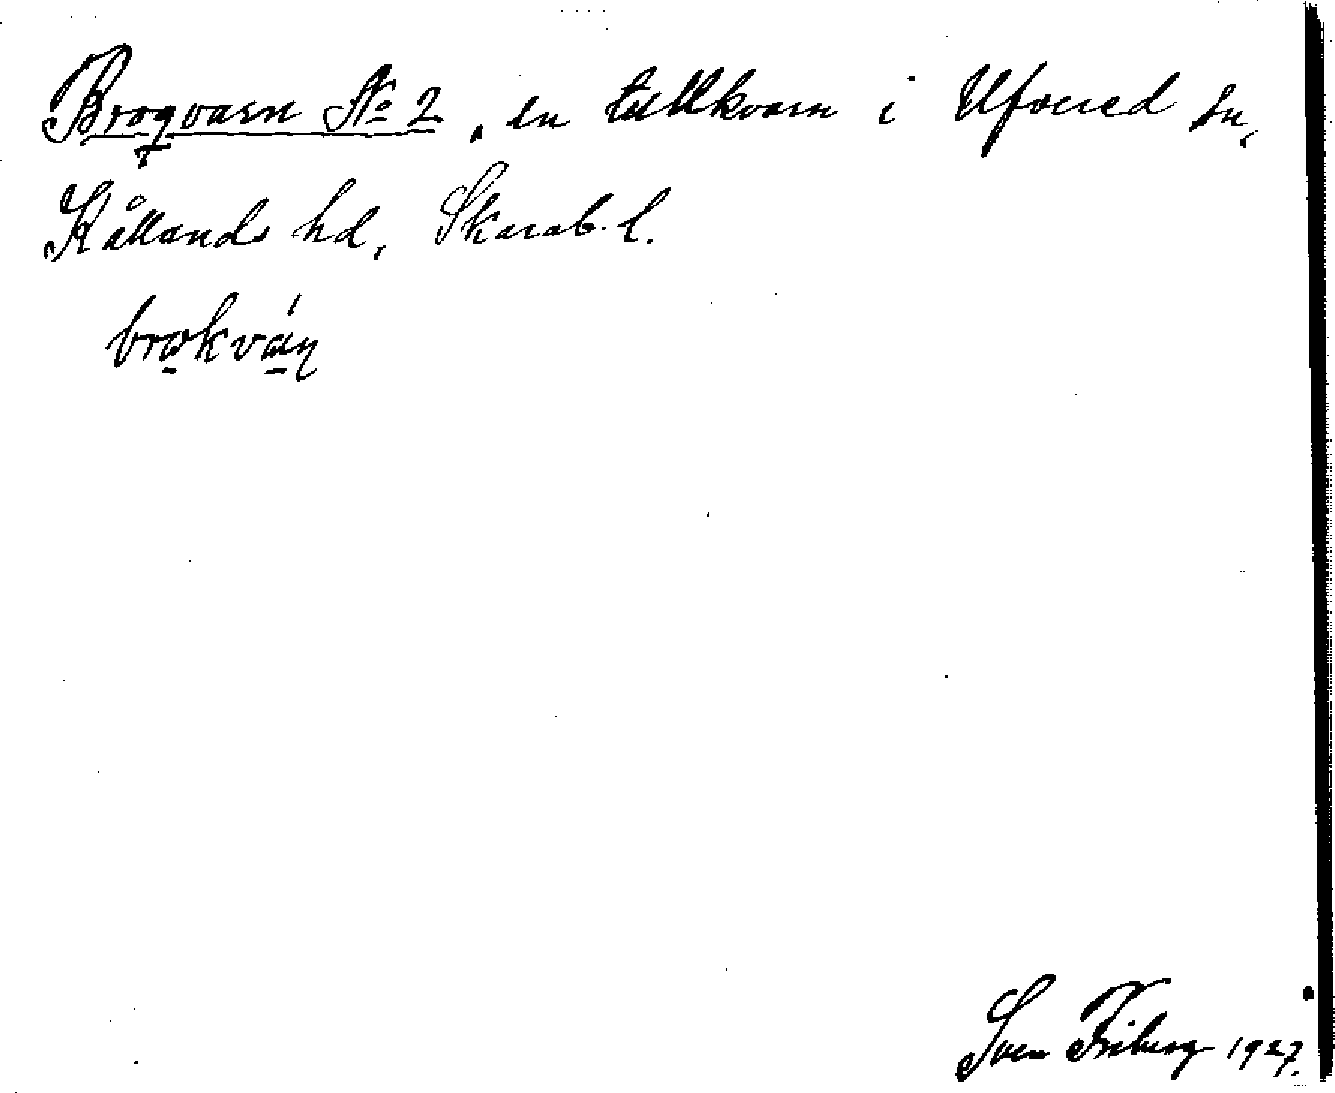 Broqvarn No 2, en tullkvarn i Ufvered sn,
Kållands hd, Skarab. l.
brokván
Sven Friberg 1927.